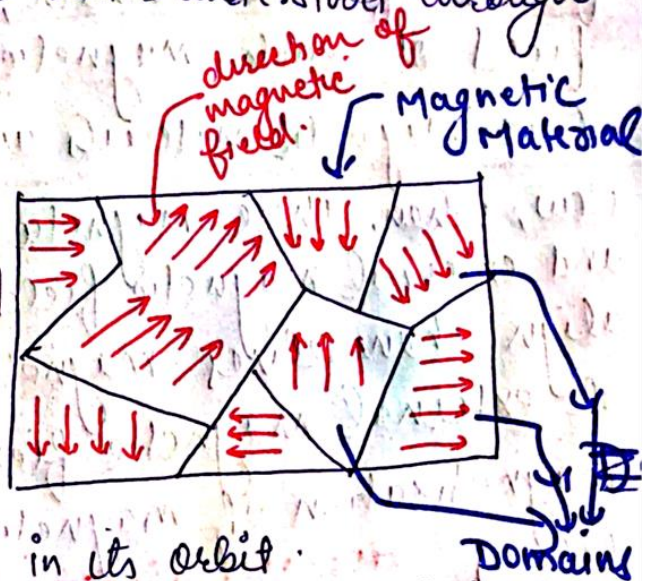 through
direction of
magnetic
field.
Magnetic
Material
in its orbit.
Domains